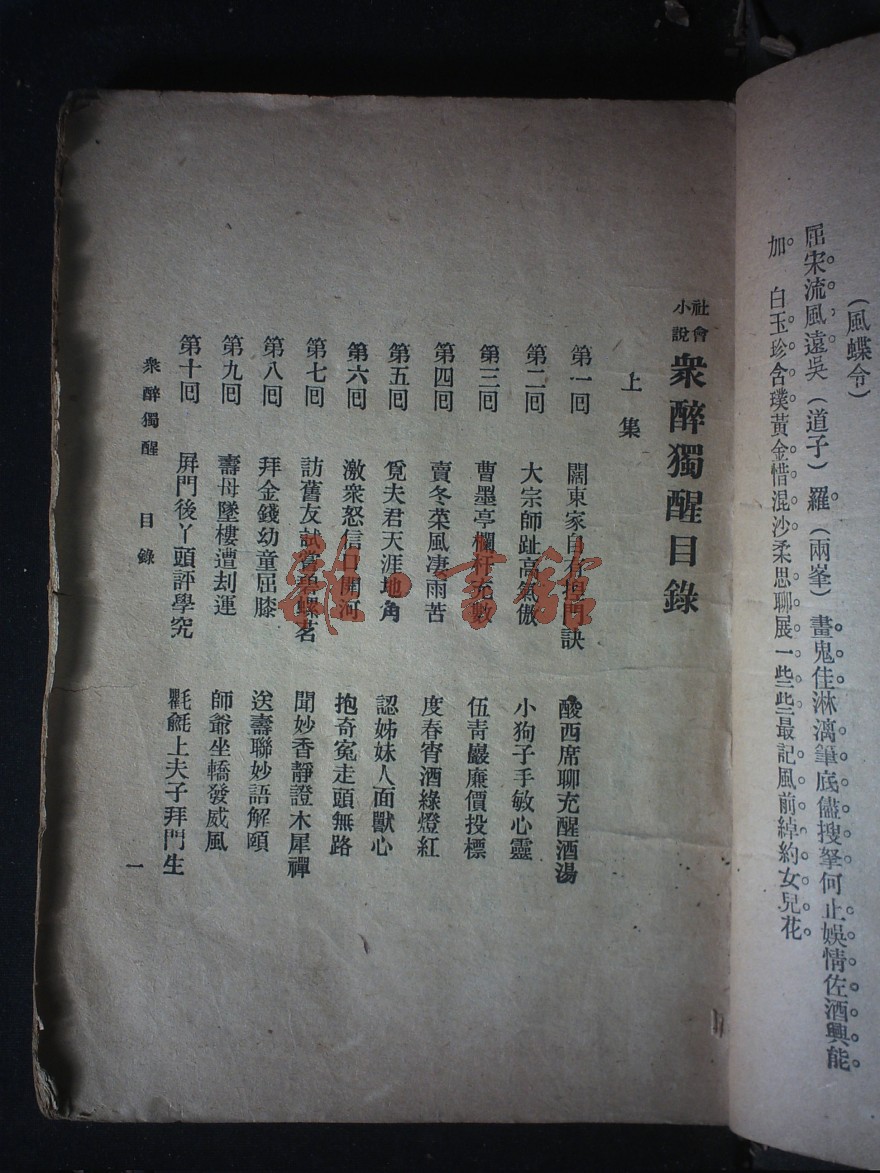 （風蝶令）
屈宋流風遠吳（道子）羅（兩峯）畫鬼佳淋漓筆底儘搜拏何止娛情佐酒興能
加　白玉珍含璞黃金惜混沙柔思聊展一些些最記風前綽約女兒花
社會小說
衆醉獨醒目錄
上集
第一回　闊東家自有拒門訣　酸西席聊充醒酒湯
第二回　大宗師趾高氣傲　小狗子手敏心靈
第三回　曹墨亭欄杆充數　伍靑巖廉價投標
第四回　賣冬菜風凄雨苦　度春宵酒綠燈紅
第五回　覓夫君天涯地角　認姊妹人面獸心
第六回　激衆怒信口開河　抱奇冤走頭無路
第七回　訪舊友試嘗碧螺茗　聞妙香靜證木犀禪
第八回　拜金錢幼童屈膝　送壽聯妙語解頤
第九回　壽母墜樓遭刦運　師爺坐轎發威風
第十回　屛門後丫頭評學究　氍毹上夫子拜門生
衆醉獨醒　目錄　一
雜·書館